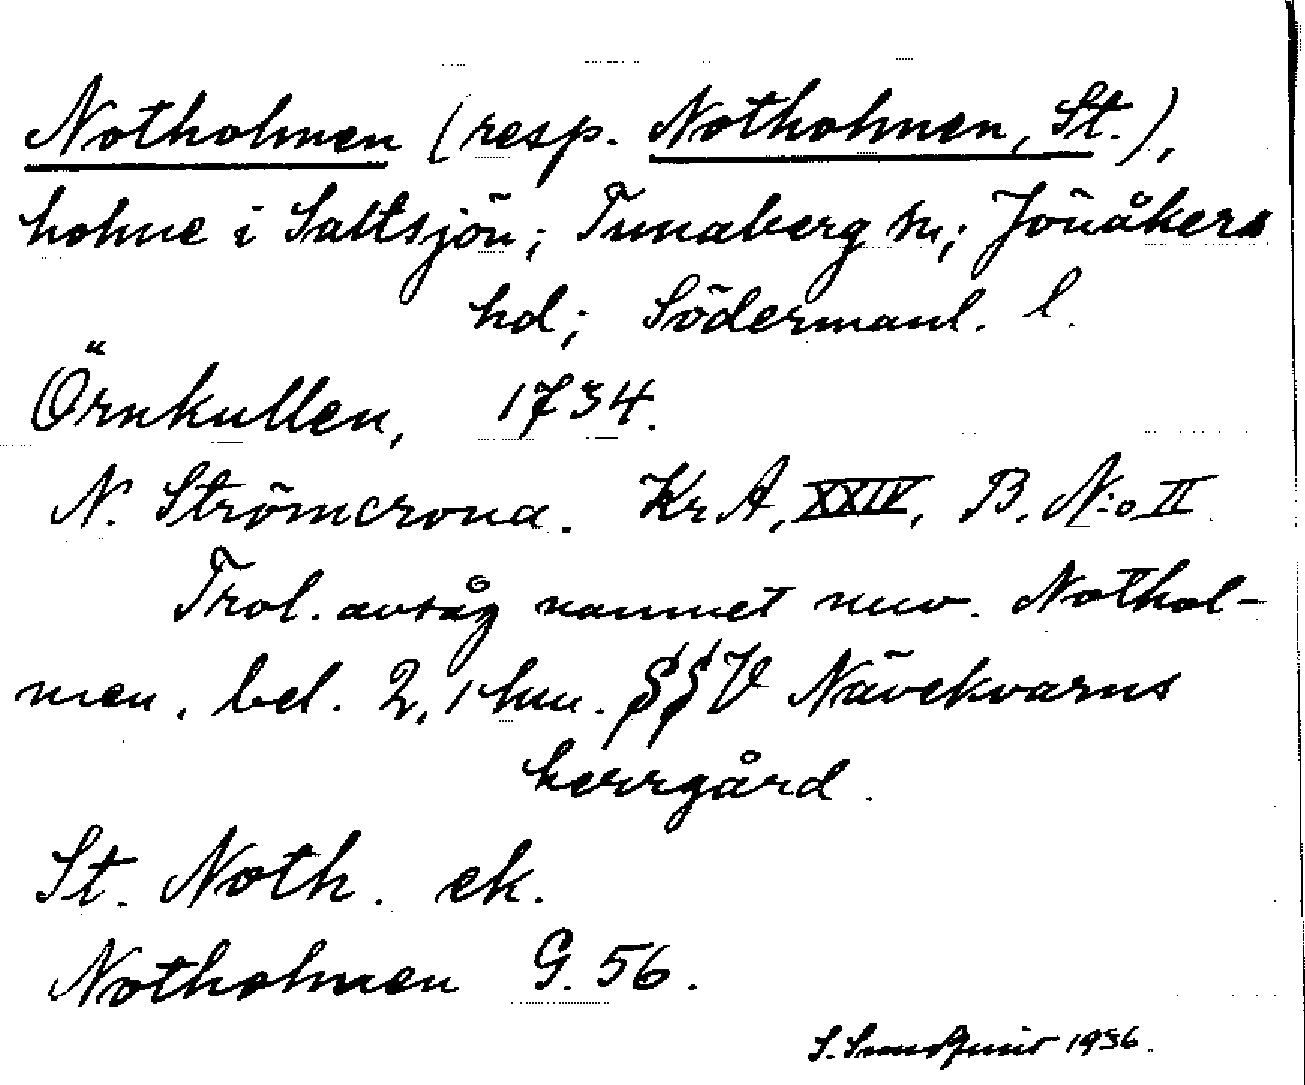 Notholmen (resp. Notholmen, St.),
holme i Saltsjön; Tunaberg sn; Jönåkers
hd; Södermanl. l.
Örnkullen, 1734.
N. Strömcrona. Kr. A, XXIV, B. N:o II
Trol. avsåg namnet nuv. Nothol-
men, bel. 2,1 km. SSV Nävekvarns
herrgård.
St. Noth. ek.
Notholmen G. 56.
S. 1936.